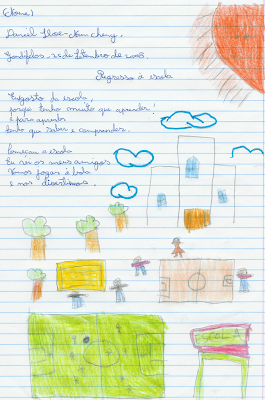 (Nome)
Daniel
de Setembro de 2008.
Regresso à escola
Eu gosto da escola,
porque tenho muito que aprender!
E para aprender
tenho que saber e compreender.
Começou a escola
Eu vi os meus amigos
Vamos jogar à bola
e nos divertimos.
ESCOLA